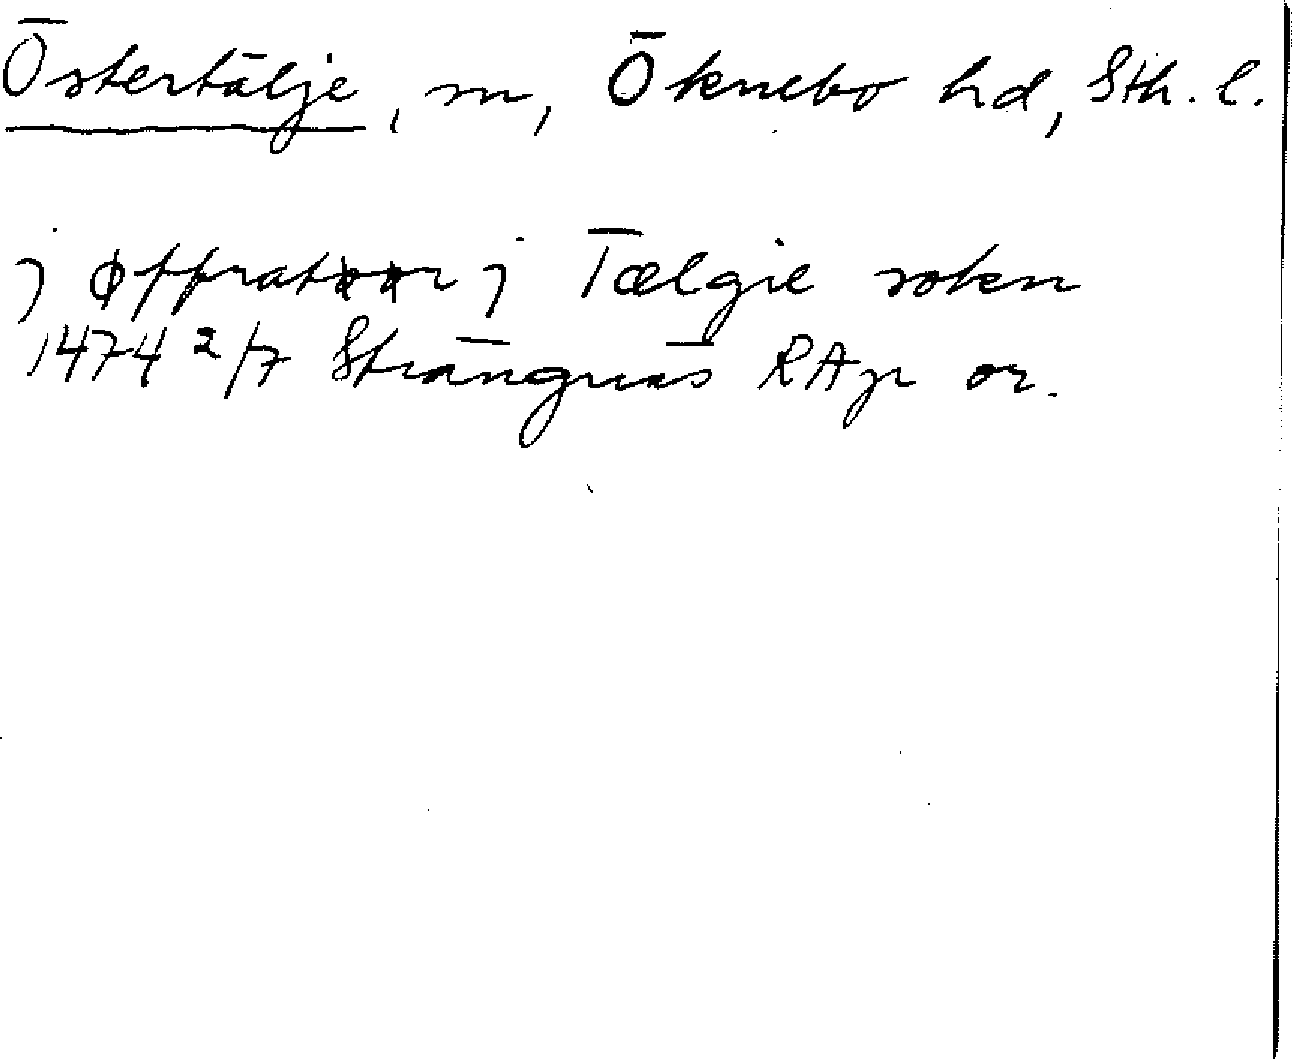 Östertälje, sn, Öknebo hd, Sth. l.
j j Tælgie sokn
1474 2/7 Strängnäs RAp or.